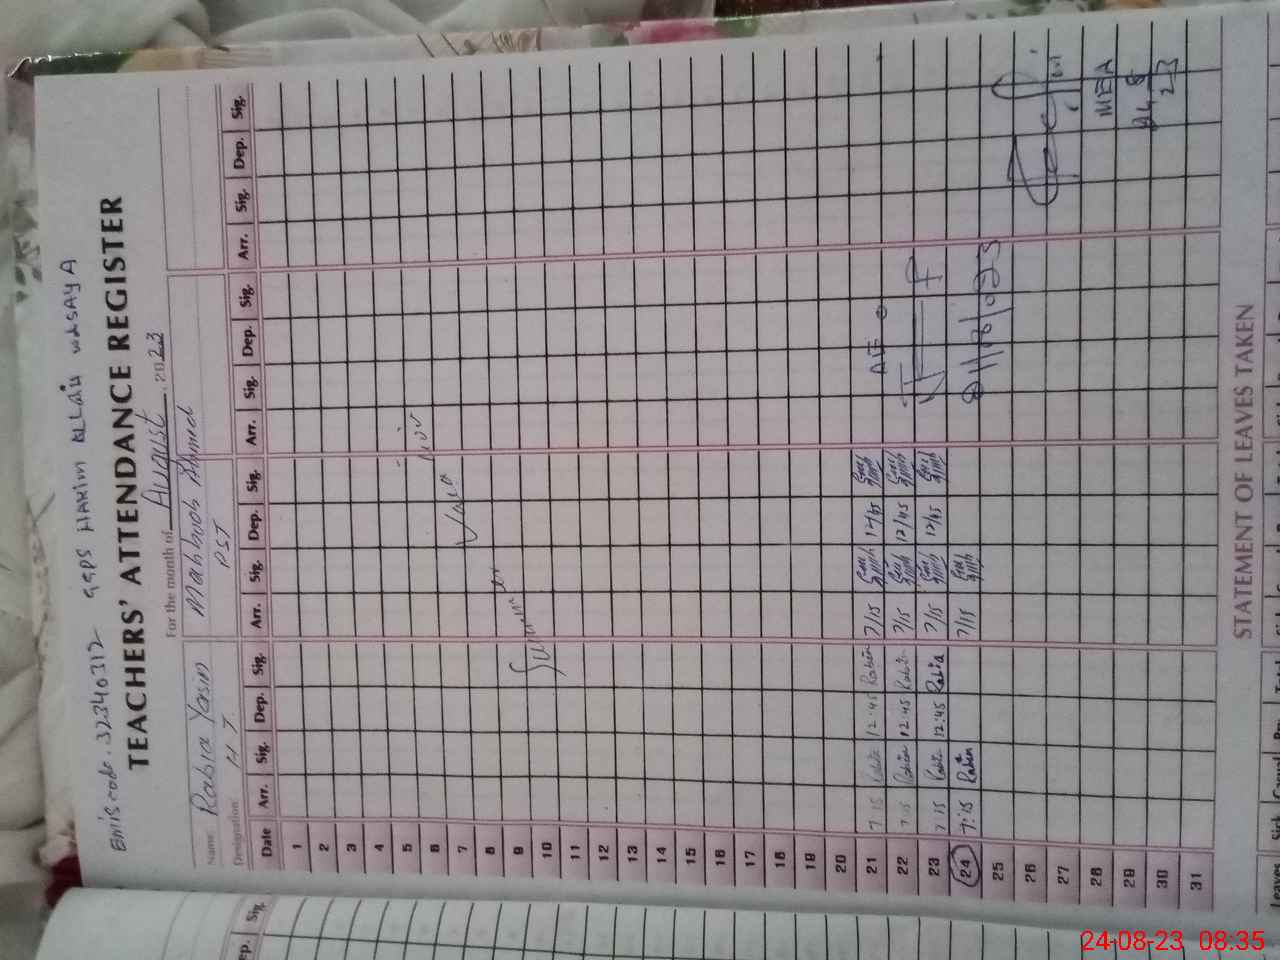 Emiscode. 32340312 GGPS HAKIM ALLAH WASAYA
TEACHERS' ATTENDANCE REGISTER
For the month of August, 2023
Name: Rabia Yasin Mahboob Ahmed
Designation: H T PST
Date Arr. Sig. Dep. Sig. Arr. Sig. Dep. Sig. Arr. Sig. Dep. Sig. Arr. Sig. Dep. Sig.
1
2
3
4
5
6
7
8
9
10
11
12
13
14
15
16
17
18
19
20
21 7:15 Rabia 12:45 Rabia 7/15 12/45
22 7:15 Rabia 12:45 Rabia 7/15 12/45
23 7:15 Rabia 12:45 Rabia 7/15 12/45
24 7:15 Rabia 7/15
25
26
27
28
29
30
31
Summer Vacation
AEO
MEA
24.8
23
STATEMENT OF LEAVES TAKEN
Dep. Sig.
24-08-23 08:35